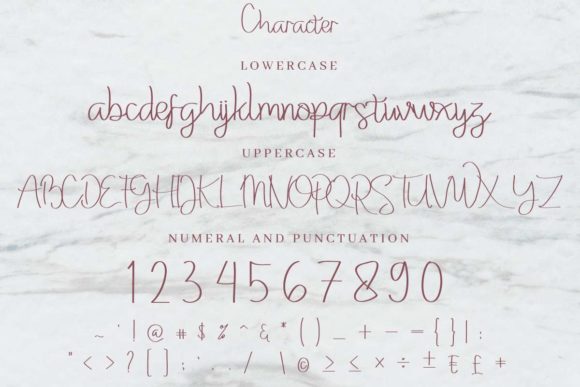 Character
LOWERCASE
abcdefghijklmnopqrstuvwxyz
UPPERCASE
ABCDEFGHIJKLMNOPQRSTUVWXYZ
NUMERAL AND PUNCTUATION
1234567890
~ ` ! @ # $ % ^ & * ( ) _ + - = { } | :
" < > ? [ ] ; ' , . / \ © ≥ ≤ × ÷ ± € £ +